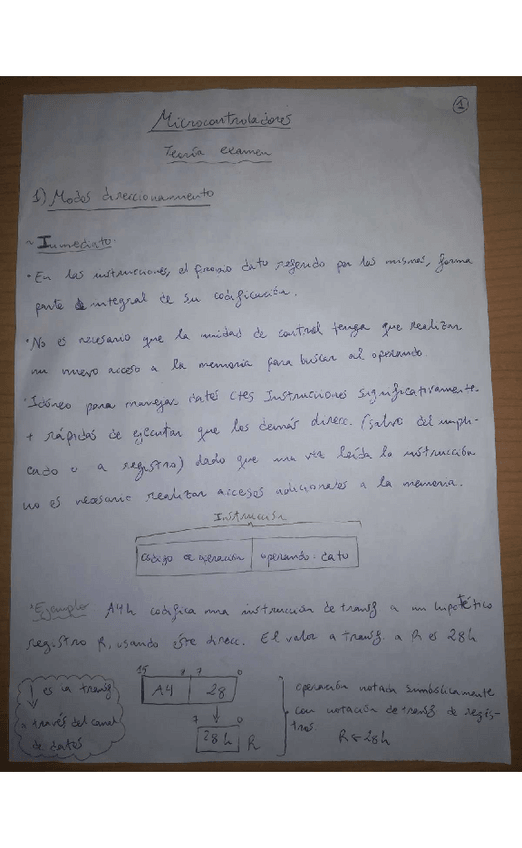 1
Microcontroladores
Teoría examen
1) Modos direccionamiento
~ Inmediato.
· En las instrucciones, el propio dato referido por las mismas, forma
parte integral de su codificación.
· No es necesario que la unidad de control tenga que realizar
un nuevo acceso a la memoria para buscar al operando
· Idóneo para manejar datos ctes Instrucciones significativamente
+ rápidas de ejecutar que los demás direcc. (salvo del impli-
cado o a registro) dado que una vez leída la instrucción
no es necesario realizar accesos adicionales a la memoria.
Instrucción
código de operación operando-dato
· Ejemplo A4h codifica una instrucción de transf a un hipotético
registro R, usando este direcc. El valor a transf. a R es 28h
15 7 0
A4 28
7 0
28h R
↓ es la transf
a través del canal
de datos
operación notada simbólicamente
con notación de transf de regis-
tros. R←28h